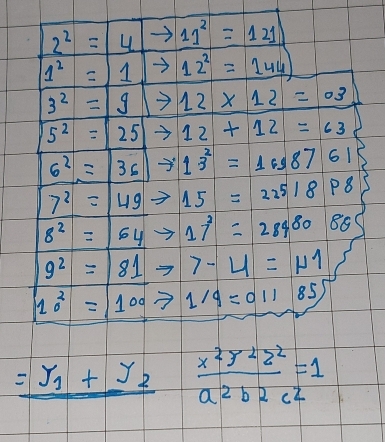 2² = 4 → 11² = 121
1² = 1 → 12² = 144
3² = 9 → 12 × 12 = 03
5² = 25 → 12 + 12 = 63
6² = 36 → 13² = 16987 61
7² = 49 → 15 = 22518 P8
8² = 64 → 17² = 28980 86
9² = 81 → 7 - 4 = 41
10² = 100 → 1/9 = 011 85
= y₁ + y₂
x² y² z² / a² b² c² = 1